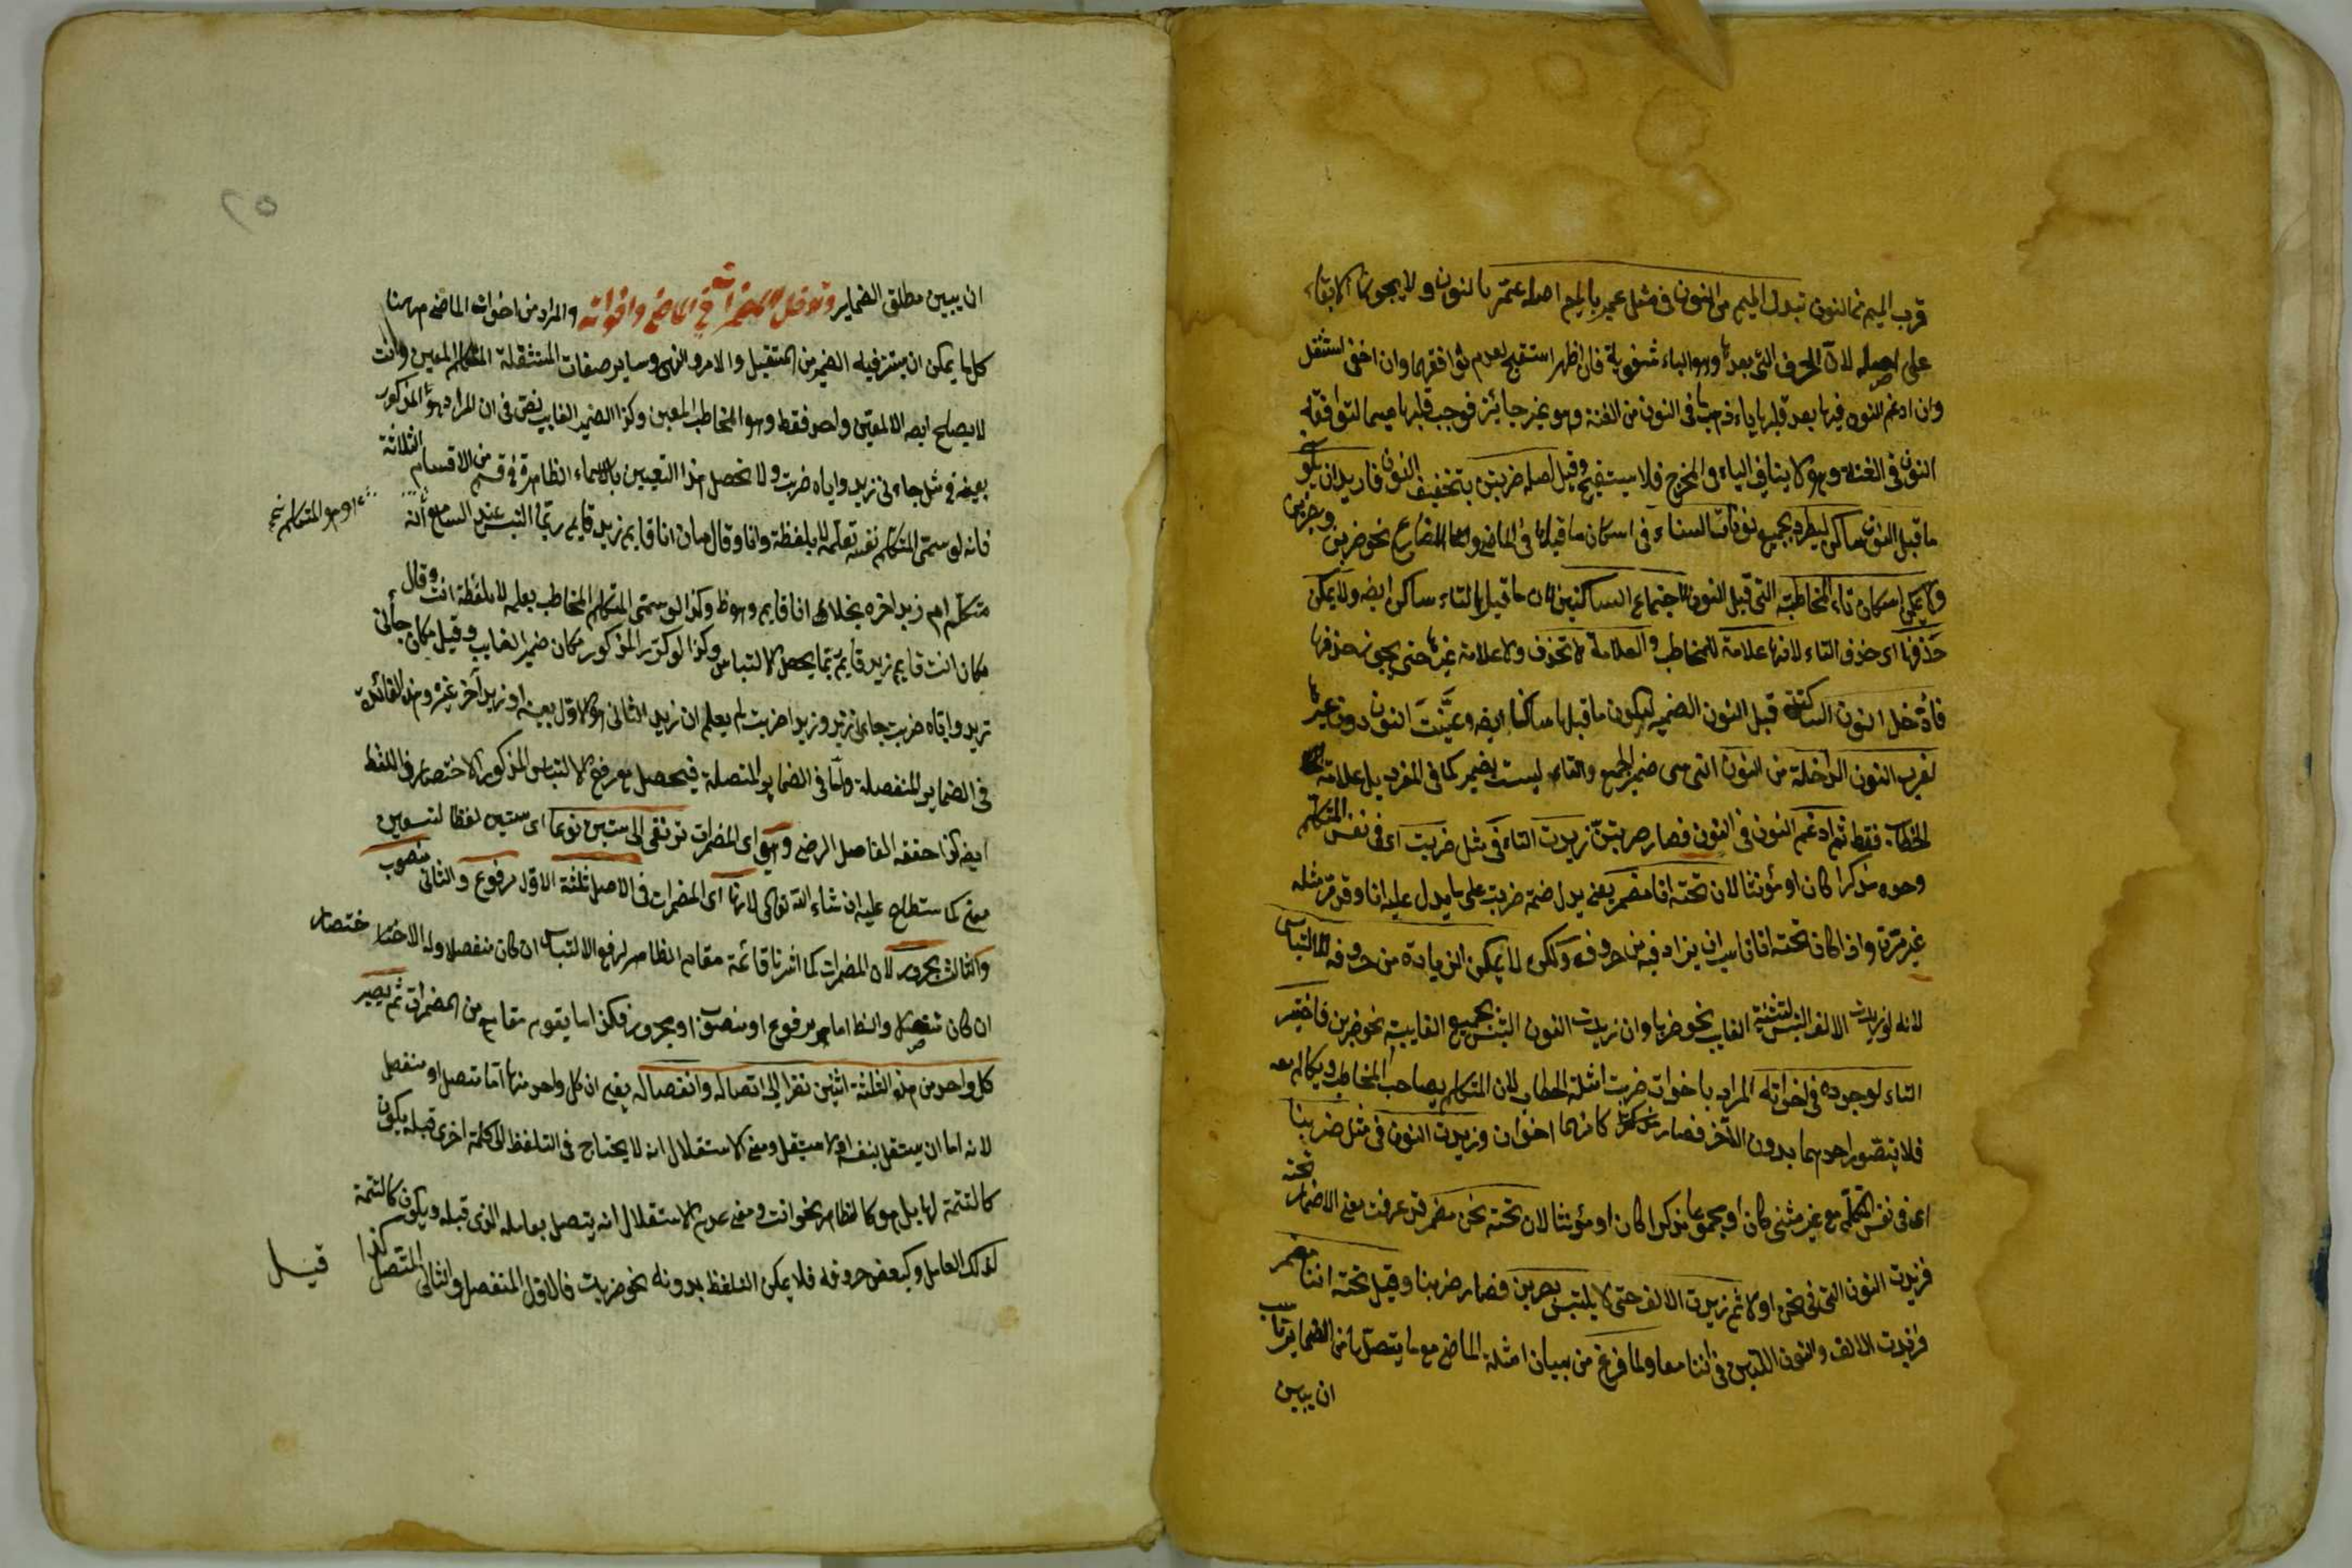 قرب الميم من النون تبدل الميم من النون في مثل عمبر بالميم اصله عنبر بالنون ولا يجوز الابقاء
على اصله لان الحرف التي بعدها وهو الباء شفوية فان اظهر استقبح لعدم توافقهما وان اخفى استثقل
وان ادغم النون فيها بعد قلبها باء ذهبت ما في النون من الغنة وهو غير جائز فوجب قلبها ميما لتوافقه
النون في الغنة وهو لا ينافي الباء في المخرج فلا يستقبح وقيل اصله ضربتن بتخفيف النون فاريد ان يكون
ما قبل النون ساكن ليطرد بجميع نونات النساء في اسكان ما قبلها في الماضي والمضارع نحو ضربن ويضربن
ولا يمكن اسكان تاء المخاطبة التي قبل النون لاجتماع الساكنين لان ما قبل التاء ساكن ايضه ولا يمكن
حذفها اى حذف التاء لانها علامة للمخاطب والعلامة لا تحذف ولا علامة غيرها حتى يجوز حذفها
فادخل النون الساكنة قبل النون الضمير ليكون ما قبلها ساكنا ايضه وعينت النون دون غيرها
لقرب النون الداخلة من النون التي هي ضمير الجمع والتاء ليست بضمير كما في المفرد بل علامة
الخطاب فقط ثم ادغم النون في النون فصار ضربتن زيدت التاء في مثل ضربت اى في نفس المتكلم
وحده مذكرا كان او مؤنثا لان تحته انا مضمر يعني يدل ضمة ضربت على ما يدل عليه انا وقد مر مثله
غير مرة واذا كان تحته انا فناسب ان يزاد فيه من حروفه ولكن لا يمكن الزيادة من حروفه للالتباس
لانه لو زيدت الالف التبس لتثنية الغايب نحو ضربا وان زيدت النون التبس بجميع الغايبة نحو ضربن فاختير
التاء لوجوده في اخواته المراد باخوات ضربت امثلة الخطاب لان المتكلم يصاحب المخاطب ويكالم معه
فلا يتصور احدهما بدون الآخر فصار كانهما اخوان وزيدت النون في مثل ضربنا
اى في نفس المتكلم مع غيره مثنى كان او مجموعا مذكرا كان او مؤنثا لان تحته نحن مضمر قد عرفت معنى الاضمار تحته
فزيدت النون التي في نحن اولا ثم زيدت الالف حتى لا يلتبس بضربن فصار ضربنا وقيل تحته اننا مضمر
فزيدت الالف والنون اللتين في اننا معا ولما فرغ من بيان امثلة الماضي مع ما يتصل بها من الضماير ناسب
ان يبين
٢٥
ان يبين مطلق الضماير وتدخل المضمرات في الماضي واخواته والمراد من اخوات الماضي ههنا
كل ما يمكن ان يستتر فيه الضمير من المستقبل والامر والنهى وساير صفات المشتقة المتكلم المعين وانت
لا يصلح ايضه الا لمعين واحد فقط وهو المخاطب المعين وكذا الضمير الغايب نص في ان المراد هو المذكور
بعينه في مثل جاءني زيد واياه ضربت ولا يحصل هذا التعيين بالاسماء الظاهرة في قسم من الاقسام الثلاثة
فانه لو سمى المتكلم نفسه بعلمه لا بلفظة انا وقال مكان انا قايم زيد قايم ربما التبس عند السامع انه
اهو المتكلم
متكلم ام زيد اخر بخلاف انا قايم وهو ظ وكذا لو سمى المتكلم المخاطب بعلمه لا بلفظة انت وقال
مكان انت قايم زيد قايم ربما يحصل الالتباس وكذا لو كرر المذكور مكان ضمير الغايب وقيل مكان جاءني
زيد واياه ضربت جاءني زيد وزيدا ضربت لم يعلم ان زيد الثاني هو الاول بعينه او زيد آخر غيره وهذه الفائدة
في الضماير المنفصلة واما في الضماير المتصلة فيحصل مع رفع الالتباس المذكور الاختصار في اللفظ
ايضه كذا حققه الفاضل الرضي وهي اى المضمرات ترتقى الى ستين نوعا اى ستين لفظا لتسعين
معنى كما ستطلع عليه ان شاء الله تعالى لانها اى المضمرات في الاصل ثلثة الاول مرفوع والثاني منصوب
والثالث مجرور لان المضمرات كما اشرنا قائمة مقام الظاهر لرفع الالتباس ان كان منفصلا وله الاختصار
ان كان متصلا والظ اما مرفوع او منصوب او مجرور فكذا ما يقوم مقامه من المضمرات ثم يصير
كل واحد من هذه الثلثة اثنين نظرا الى اتصاله وانفصاله يعني ان كل واحد منها اما متصل او منفصل
لانه اما ان يستقل بنفسه او لا يستقل ومعنى الاستقلال انه لا يحتاج في التلفظ الى كلمة اخرى قبله يكون
كالتتمة لها بل هو كالظاهر نحو انت ومعنى عدم الاستقلال انه يتصل بعامله الذي قبله ويكون كالتتمة
لذلك العامل وكبعض حروفه فلا يمكن التلفظ بدونه نحو ضربت فالاول المنفصل والثاني المتصل كذا قيل